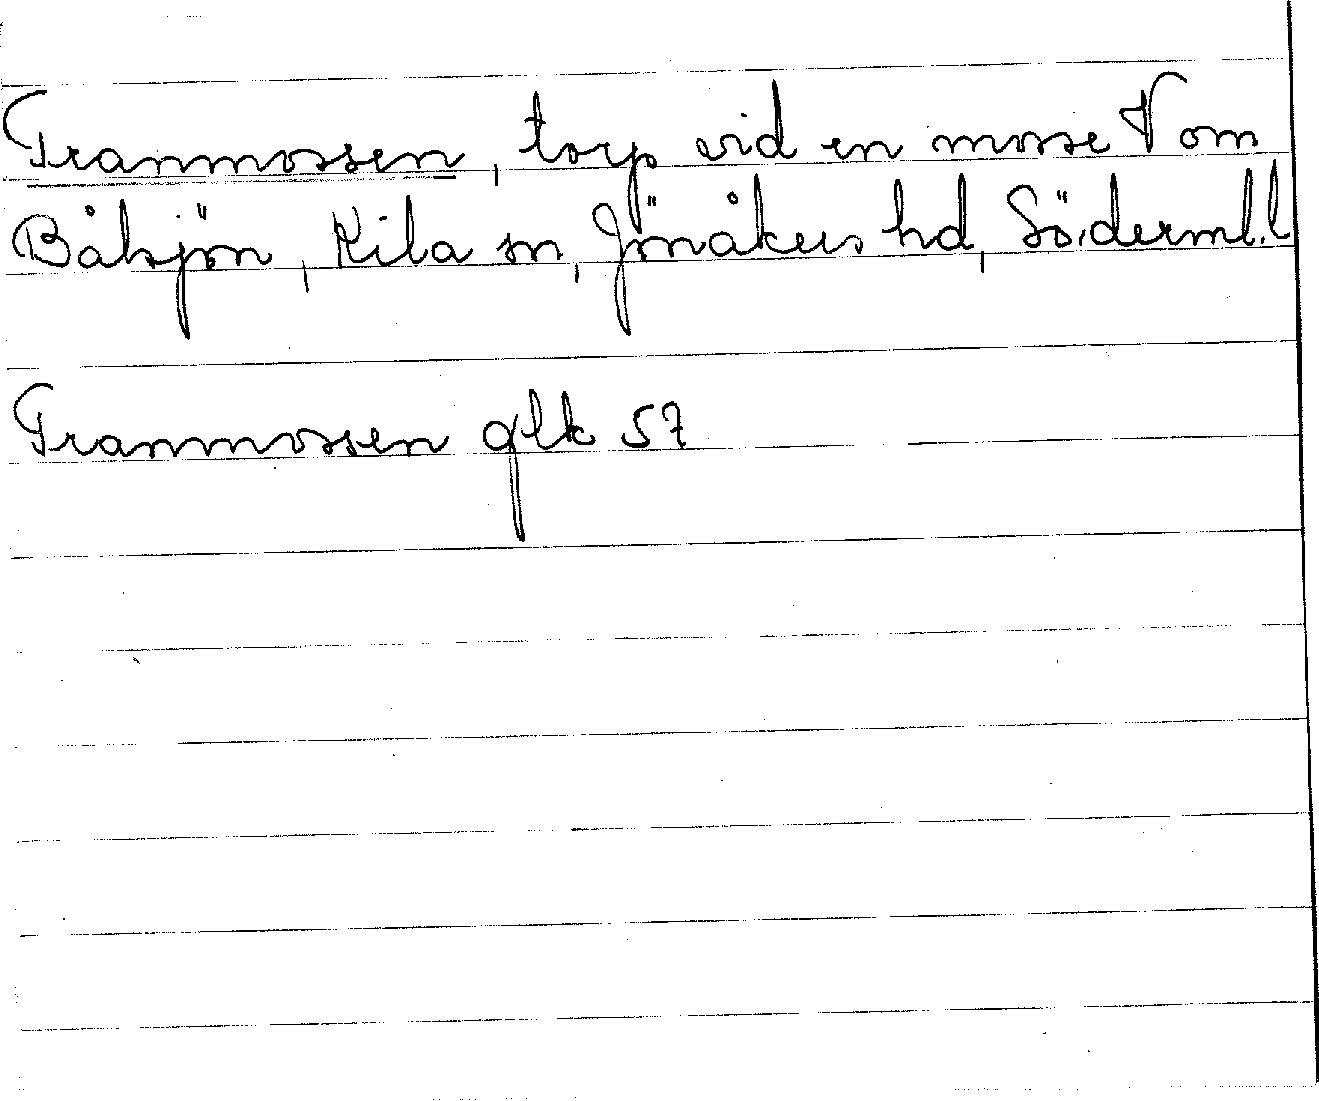 Tranmossen, torp vid en mosse V om
Båksjön, Kila sn, Jönåkers hd, Söderml. l
Tranmossen glk 57